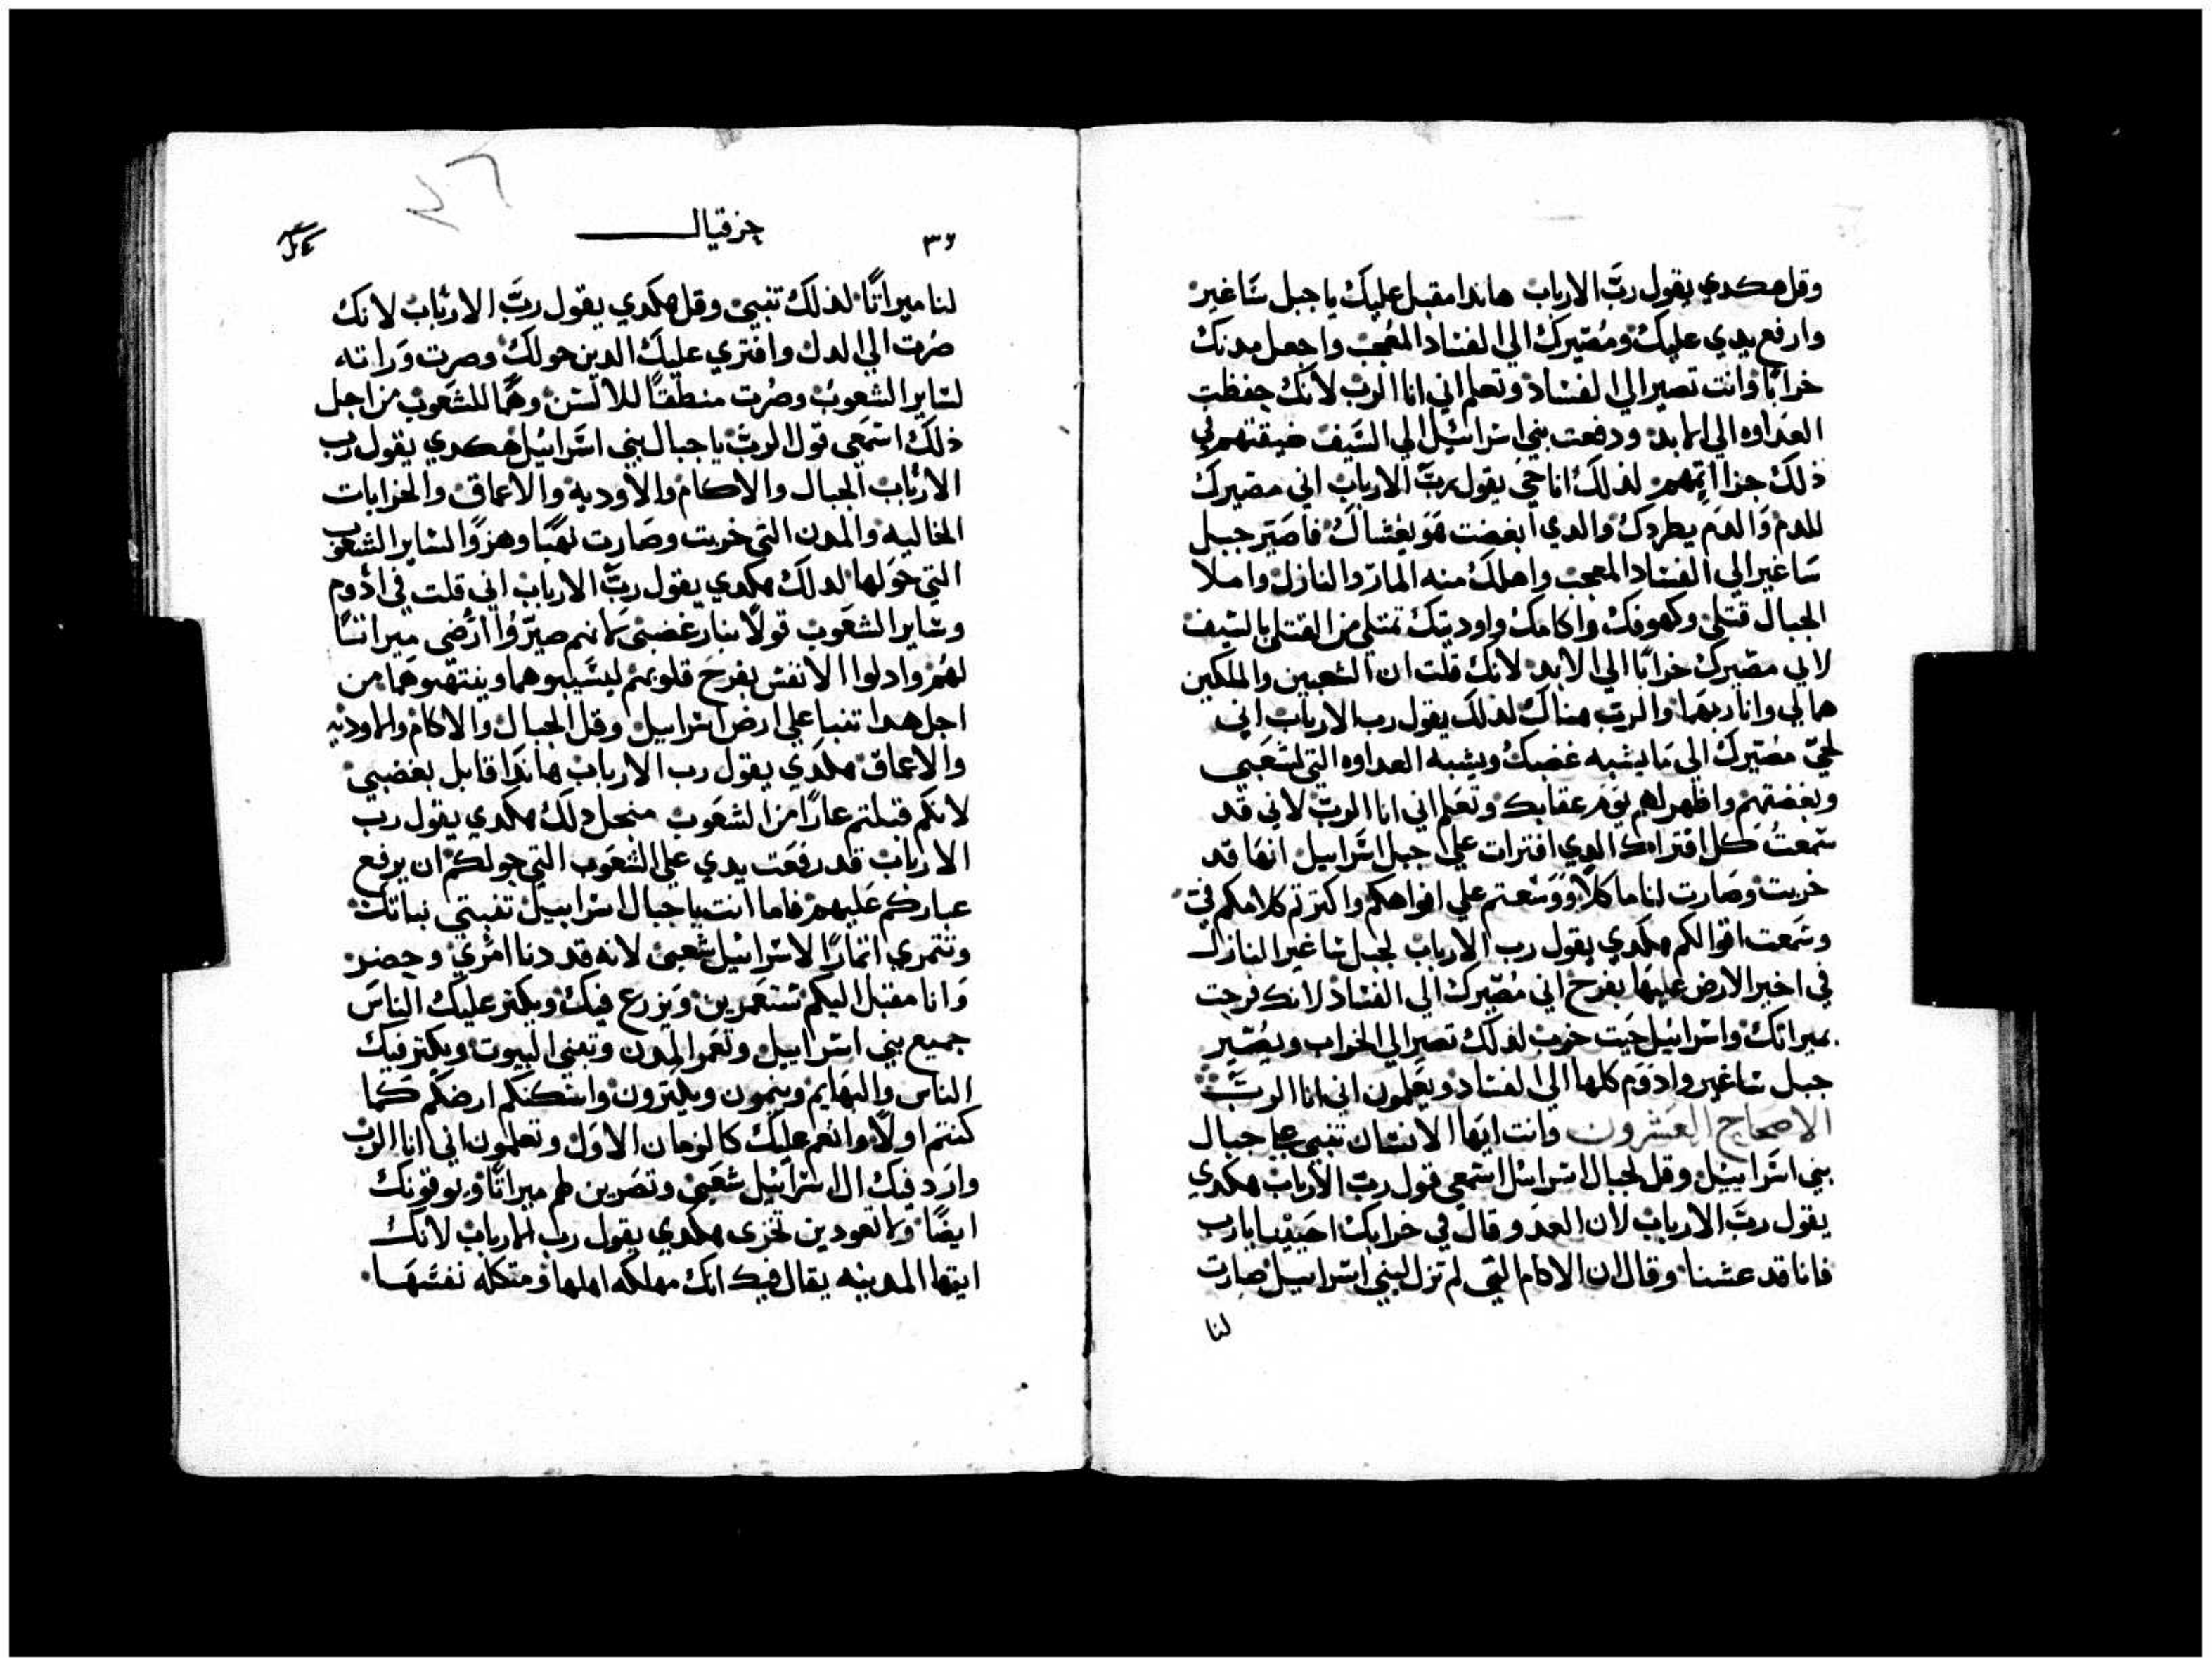 وقل هكدي يقول ربّ الارباب هاندا مقبل عليك يا جبل ساغير
وارفع يدي عليك ومُصيرك الي الفساد المعجب واجعل مدنك
خرابًا وانت تصير الي الفساد وتعلم اني انا الرب لانك حفظت
العداوه الي الابد ودفعت بني اسراييل الي السيف ضيقتهم في
ذلك جزا اتمهم لذلك انا حي يقول ربّ الارباب اني مصيرك
للدم والدم يطردك والدي ابغضت هو يغشاك فاصيّر جبل
ساغير الي الفساد المعجب واهلك منه المارّ والنازل واملا
الجبال قتلي وكهوفك واكامك واوديتك تمتلي من القتلي بالسيف
لاني مصيرك خرابًا الي الابد لانك قلت ان الشعبين والملكين
هما لي وانا ربهما والرب هناك لدلك يقول رب الارباب اني
لحيّ مصيّرك الي ما يشبه غضبك ويشبه العداوه التي لشعبي
وبغضتهم واظهر لهم يوم عقابك وتعلم اني انا الربّ لاني قد
سمعتُ كل افتراك الدي افترات علي جبل اسراييل انها قد
خربت وصارت لنا ماكلاً ووسعتم علي افواهكم واكترتم كلامكم فيّ
وسمعت اقوالكم هكدي يقول رب الارباب لجبل ساغير النازل
في اخير الارض عليها بفرح اني مُصيّرك الي الفساد لانك فرحت
بميراتك واسراييل حيت خرب لدلك تصير الي الخراب ويصير
جبل ساغير وادوم كلها الي الفساد ويعلمون اني انا الربّ
الاصحاح العشرون وانت ايها الانسان تنبي علي جبال
بني اسراييل وقل لجبال اسراييل اسمعي قول ربّ الارباب هكدي
يقول ربّ الارباب لان العدو قال في خرابك احيينا يارب
فانا قد عشنا وقال ان الاكام التي لم تزل لبني اسراييل صارت
لنا
٣٦
حزقيال
لنا ميراتًا لذلك تنبي وقل هكدي يقول ربّ الارباب لانك
صُرت الي الدل وافتري عليك الدين حولك وصرت وراته
لساير الشعوب وصُرت منطقًا للالسن وهمًا للشعوب من اجل
ذلك اسمعي قول الربّ يا جبال بني اسراييل هكدي يقول رب
الارباب الجبال والاكام والاوديه والاعماق والخرابات
الخاليه والمدن التي خربت وصارت نهبًا وهزوًا لساير الشعوب
التي حولها لدلك هكدي يقول ربّ الارباب اني قلت في ادوم
وساير الشعوب قولًا بنار غضبي لانهم صيّروا ارضي ميراتًا
لهم وادلوا الانفس بفرح قلوبهم ليسيبوهما وينتهبوهما من
اجل هدا تنبا علي ارض اسراييل وقل للجبال والاكام والاوديه
والاعماق هكدي يقول رب الارباب هاندا قايل بغضبي
لانكم قبلتم عارًا من الشعوب منجل دلك هكدي يقول رب
الارباب قد رفعت يدي علي الشعوب التي حولكم ان يرفع
عياركم عليهم فاما انت يا جبال اسراييل تنبتي نباتك
وتتمري اتمارًا لاسراييل شعبي لانه قد دنا امري وحضر
وانا مقبل اليكم تستعمرين ويزرع فيك ويكتر عليك الناس
جميع بني اسراييل وتعمر المدن وتبني البيوت ويكتر فيك
الناس والبهايم وينمون ويكترون واسكنكم ارضكم كما
كنتم اولًا وانعم عليك كالزمان الاول وتعلمون اني انا الرب
وارد فيك ال اسراييل شعبي وتصرين لهم ميراتًا ويوقونك
ايضًا ولا تعودين تخزى هكدي يقول رب الارباب لانك
ايتها المدينه يقال فيك انك مهلكه اهلها ومتكله نفسها